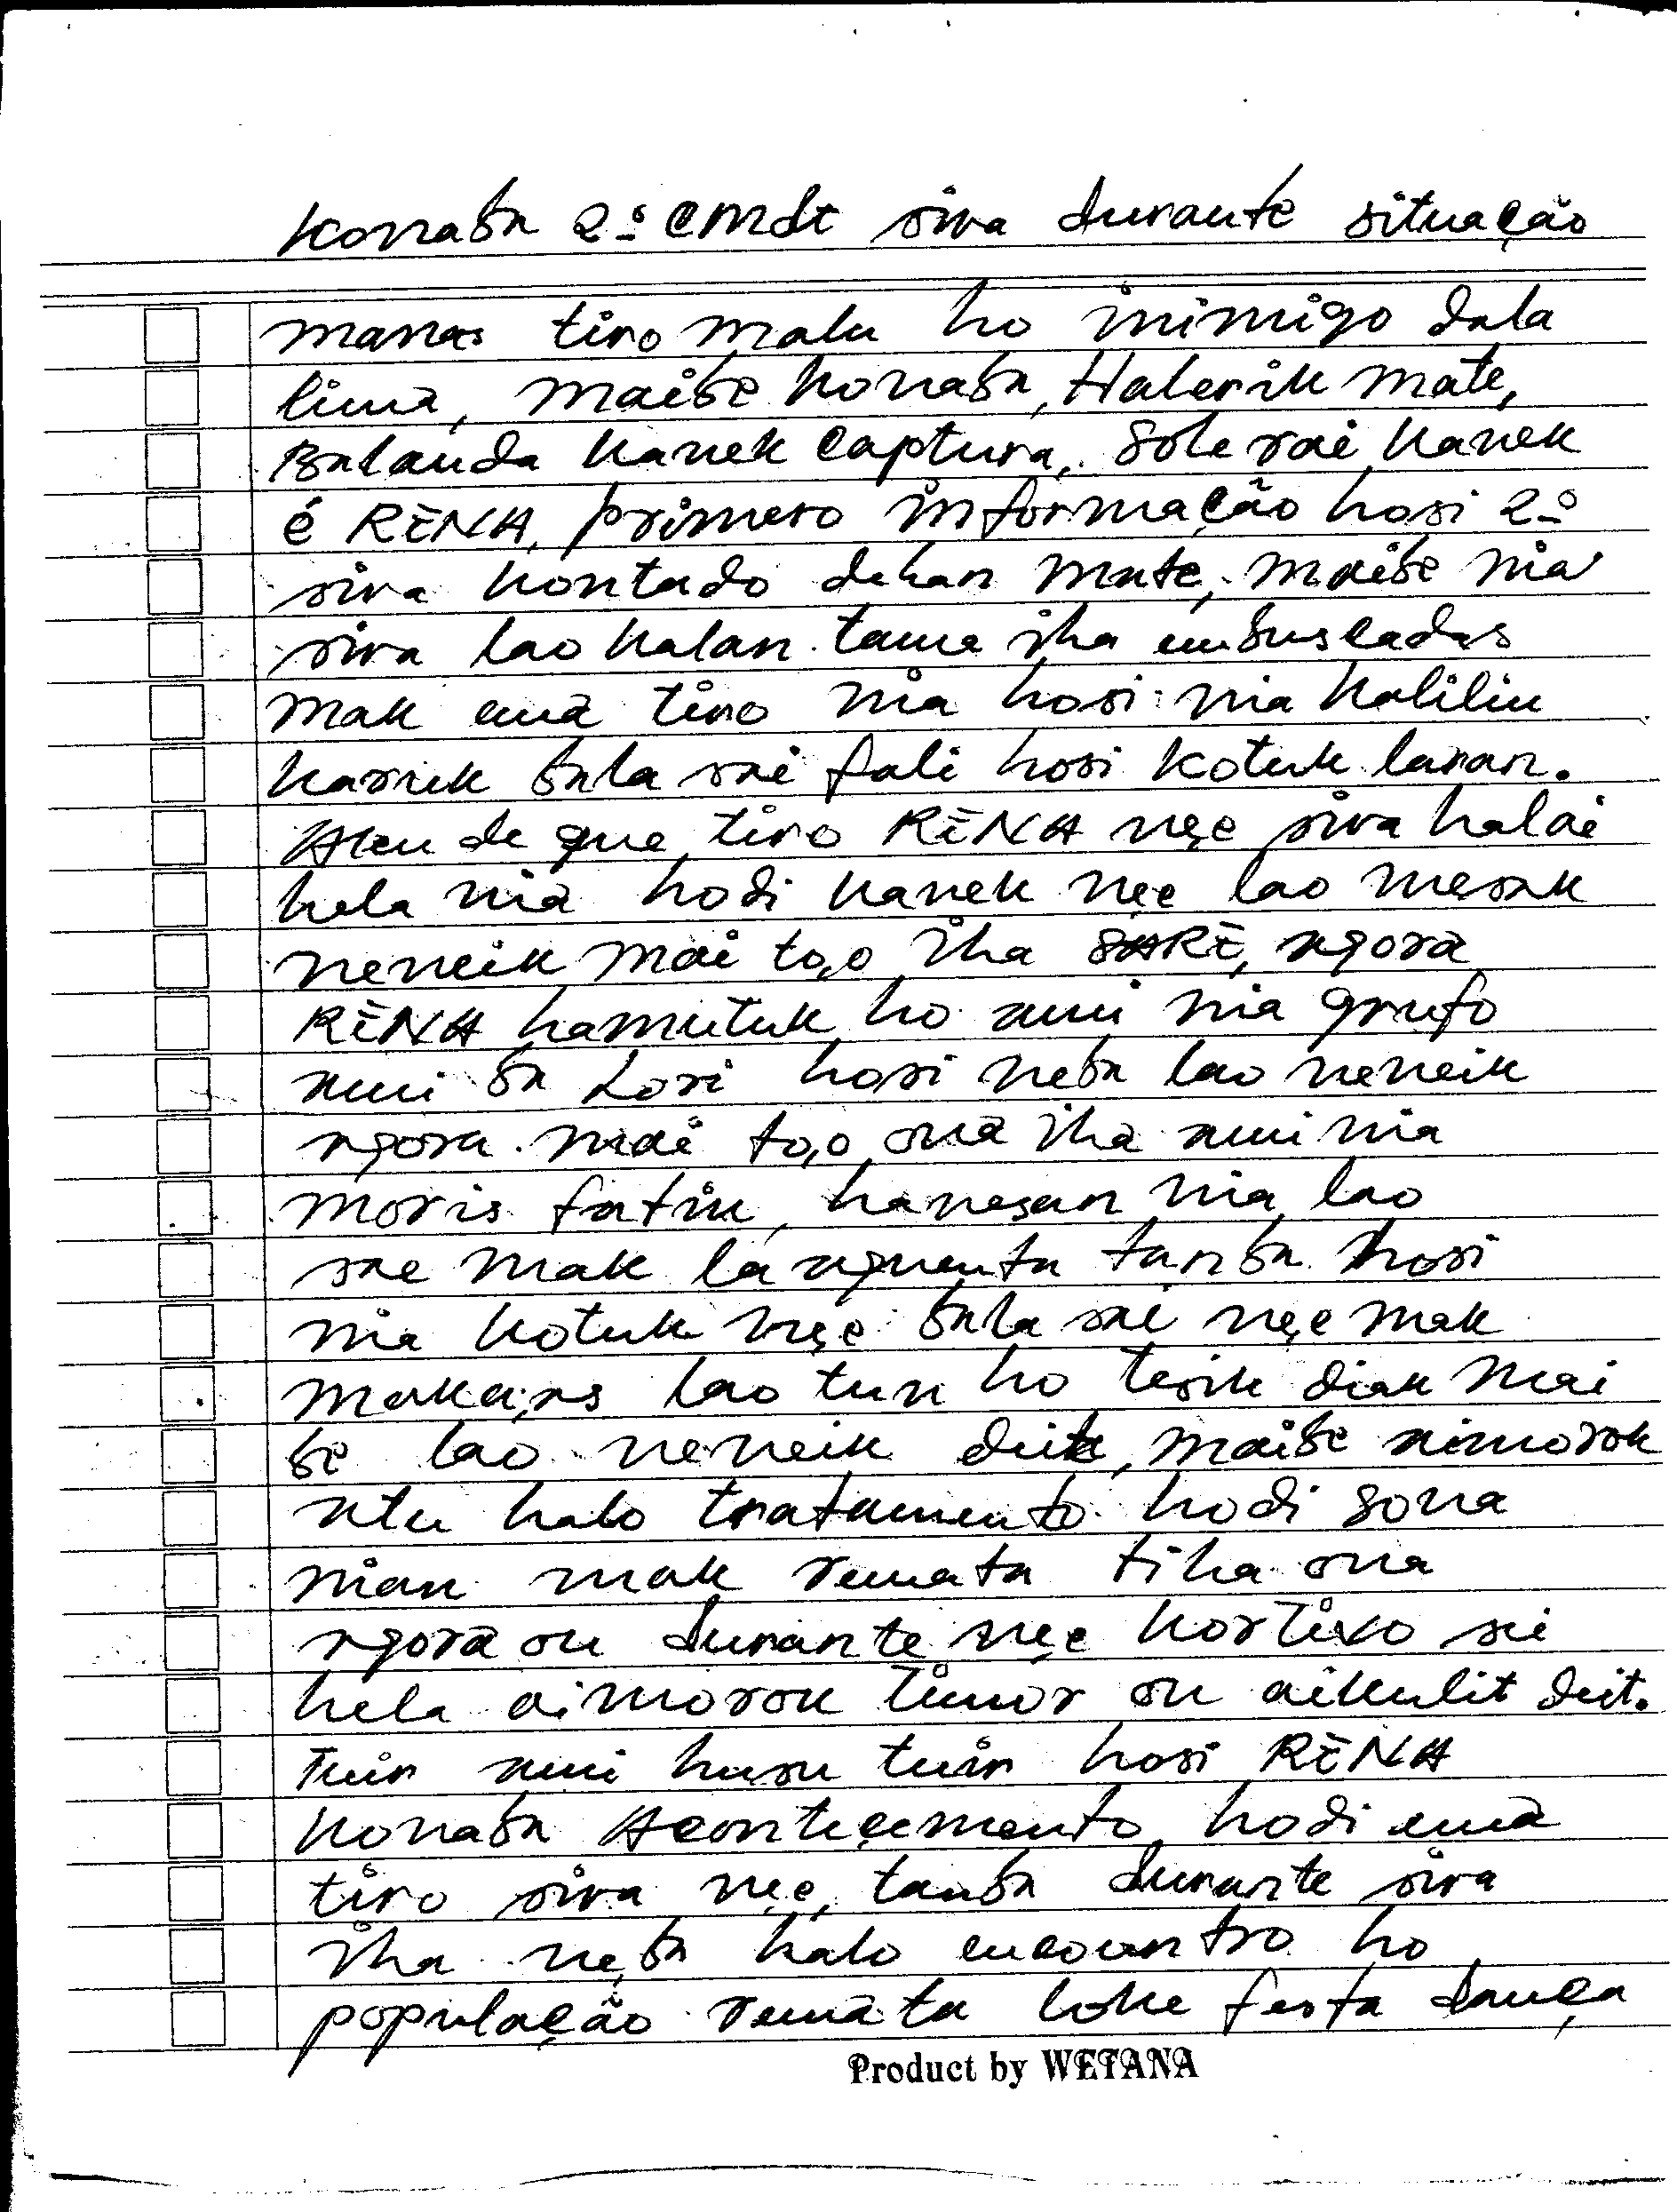 Konaba 2º Cmdt sira durante situação
manas tiro malu ho inimigo dala
lima, maibe konaba, Halerik mate,
Balauda kanek captura, Solerai kanek
é RENA, primero informação hosi 2º
sira kontado dehan mate, maibe nia
sira lao kalan tama iha embuscadas
mak ema tiro nia hosi nia kaliliu
karuk bala sai fali hosi kotuk laran.
Aleu de que tiro RENA ne,e sira halai
hela nia hodi kanek ne,e lao mesak
neneik mai to,o iha SARE, agora
RENA hamutuk ho ami nia grupo
ami ba Lori hosi neba lao neneik
agora mai to,o ona iha ami nia
moris fatin, hanesan nia lao
sae mak la aguenta tanba hosi
nia kotuk ne,e bala sai ne,e mak
maka,as lao tun ho tesik diak mai
be lao neneik deit, maibe aimoruk
atu halo tratamento hodi sona
nian mak remata tiha ona
agora ou durante ne,e kortivo sei
hela aimoruk Timor ou aikulit deit.
Tuir ami husu tuir hosi RENA
konaba Aconteçemento, hodi ema
tiro sira ne,e, tamba durante sira
iha ne,ba halo encountro ho
população remata loke festa dança
Product by WETANA